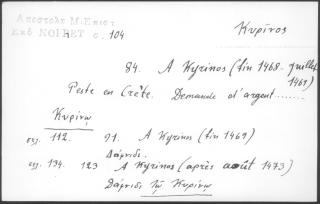 Αποστόλη Μ. Επιστ
Εκδ NOIRET σ. 104
Κυρῖνος
84. A Kyrinos (fin 1468 - juillet 1469)
Peste en Crète. Demande d'argent.......
Κυρίνῳ
σχ. 112. 91. A Kyrinos (fin 1469)
Δάρνιδι
σχ. 134. 123 A Kyrinos (après août 1473)
Δάρνιδι τῷ Κυρίνῳ